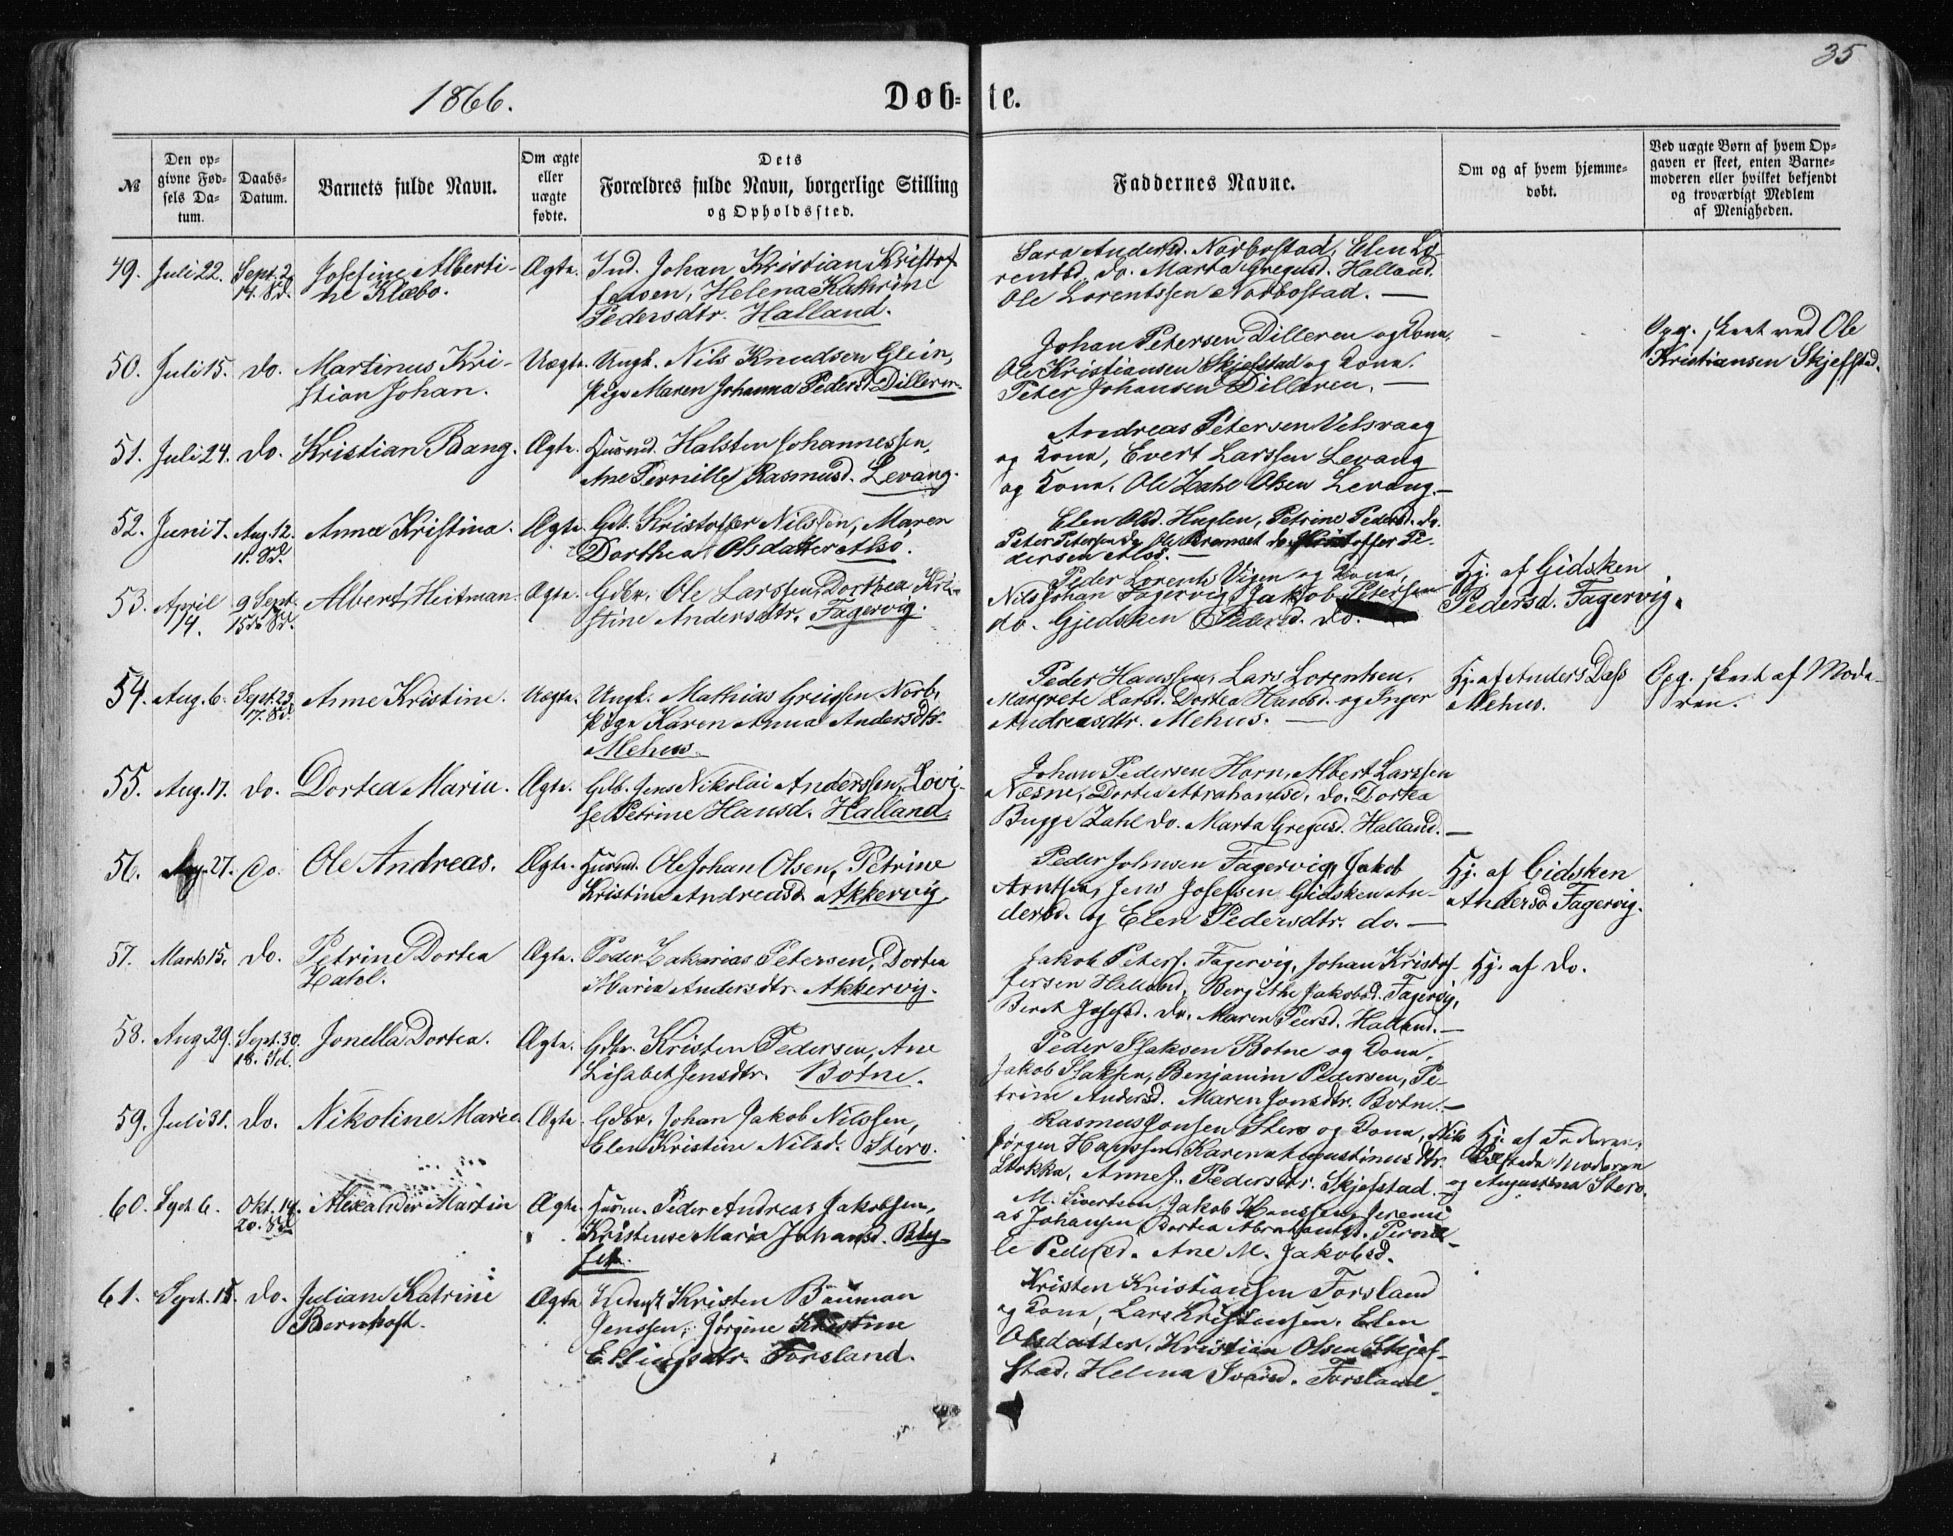 35
1866.
Døb=te.
№
Den op=
givne Fød=
sels Da=
tum.
Daabs=
Datum.
Barnets fulde Navn.
Om ægte
eller
uægte
fødte.
Dets
Forældres fulde Navn, borgerlige Stilling
og Opholdssted.
Faddernes Navne.
Om og af hvem hjemme=
døbt.
Ved uægte Børn af hvem Op=
gaven er skeet, enten Barne=
moderen eller hvilket bekjendt
og troværdigt Medlem
af Menigheden.
49. Juli 22. Sept. 2. 14. S.d. Josefine Alberti-
ne Klæbo.
Ægte. Ind. Johan Kristian Kristof
fersen, Helena Kathrine
Pedersdtr. Halland.
Sara Andersd. Norbostad, Elen Lo-
rentsd. do. Marta Gregusd. Halland.
Ole Lorentssen Norbostad. —
50. Juli 15. do. Martinus Kri-
stian Johan.
Uægte. Ungk. Nils Knudsen Glein,
Pige Maren Johanna Pedersd. Dilleren.
Johan Petersen Dilleren og Kona,
Ole Kristiansen Skjefstad og Kona.
Peter Johansen Dilleren. —
Opg. skeet ved Ole
Kristiansen Skjefstad.
51. Juli 24. do. Kristian Bang.
Ægte. Husmd. Halsten Johannessen,
Ane Pernille Rasmusd. Levang.
Andreas Petersen Velsvaag
og Kona, Evert Larssen Levang
og Kona. Ole Zahl Olsen Levang. —
52. Juni 7. Aug. 12. 11. S.d. Anna Kristina.
Ægte. Gdb. Kristoffer Nilssen, Maren
Dorthea Olsdatter Alsø.
Elen Olsd. Huglen, Petrine Pedersd. do.
Peter Petersen do. Ole
dersen Alsø. —
53. April 14. 9 Sept. 15de S.d. Albert Heitman.
Ægte. Gdbr. Ole Larssen, Dorthea Kri-
stine Andersdtr. Fagervig.
Peder Lorents Vigen og Kona,
Nils Johan Fagervig, Jakob Petersen
do. Gjedsken Pedersd. do.
Hj. af Gidsken
Pedersd. Fagervig.
54. Aug. 6. Sept. 23. 17. S.d. Anne Kristine.
Uægte. Ungk. Mathias Greigsen Norb,
Pige Karen Anna Andersdtr.
Mehus.
Peder Hanssen, Lars Lorentsen,
Margrete Larsd. Dortea Hansd. og Inger
Andreasdtr. Mehus. —
Hj. af Anders Dass
Mehus.
Opg. skeet af Mode-
ren.
55. Aug. 17. do. Dortea Maria.
Ægte. Gdb. Jens Nikolai Anderssen, Lovi-
se Petrine Hansd. Halland.
Johan Pedersen Horn, Albert Larssen
Næsne, Dortea Abrahamsd. do. Dortea
Bugge Zahl do. Marta Gregusd. Halland. —
56. Aug. 27. do. Ole Andreas.
Ægte. Husmd. Ole Johan Olsen, Petrine
Kristine Andreasd. Akkervig
Peder Johnsen Fagervig, Jakob
Arntsen, Jens Josefsen Gidsken An-
dersd. og Elen Pedersdtr. do. —
Hj. af Gidsken
Andersd. Fagervig.
57. Marts 15. do. Petrine Dortea
Hatol.
Ægte. Peder Zakarias Petersen, Dortea
Maria Andersdtr. Akkervig.
Jakob Peters. Fagervig, Johan Kristof-
fersen Halland, Bergithe Jakobsd. Fagervig,
Beret Josefsd. do. Maren Peersd. Halland. —
Hj. af do.
58. Aug. 29. Sept. 30. 18. S.d. Jonella Dortea.
Ægte. Gdbr. Kristen Pedersen, Ane
Lisabet Jensdtr. Botne.
Peder Isaksen Botne og Kona,
Jakob Isaksen, Benjamin Pedersen, Pe-
trine Andersd. Maren Jonsdtr. Botne. —
59. Juli 31. do. Nikoline Marie
Ægte. Gdbr. Johan Jakob Nilssen,
Elen Kristine Nilsd. Stero.
Rasmus Jonsen Stero og Kona, Nils
Jørgen Hanssen, Karen Augustinusdtr.
Stokka, Anne J. Pedersdtr. Skjefstad.
Hj. af Faderen.
Tilstede Moderen
og Augustina Stero.
60. Sept. 6. Okt. 14. 20. S.d. Alexander Martin
Ægte. Husm. Peder Andreas Jakobsen,
Kristense Maria Johansd.
M. Sivertsen, Jakob Hanssen, Jeremi
as Johansen, Dortea Abrahamsd. Pernil-
le Pedersd. Ane M. Jakobsd.
61. Sept. 15. do. Juliane Katrine
Bernhoft.
Ægte Kristen Bauman
Jenssen, Jørgine Kristine
Ellingsdtr. Forsland.
Kristen Kristiansen Forsland
og Kona, Lars Kristensen. Elen
Olsdatter, Kristian Olsen Skjef-
stad. Helena Ivarsd. Forsland.